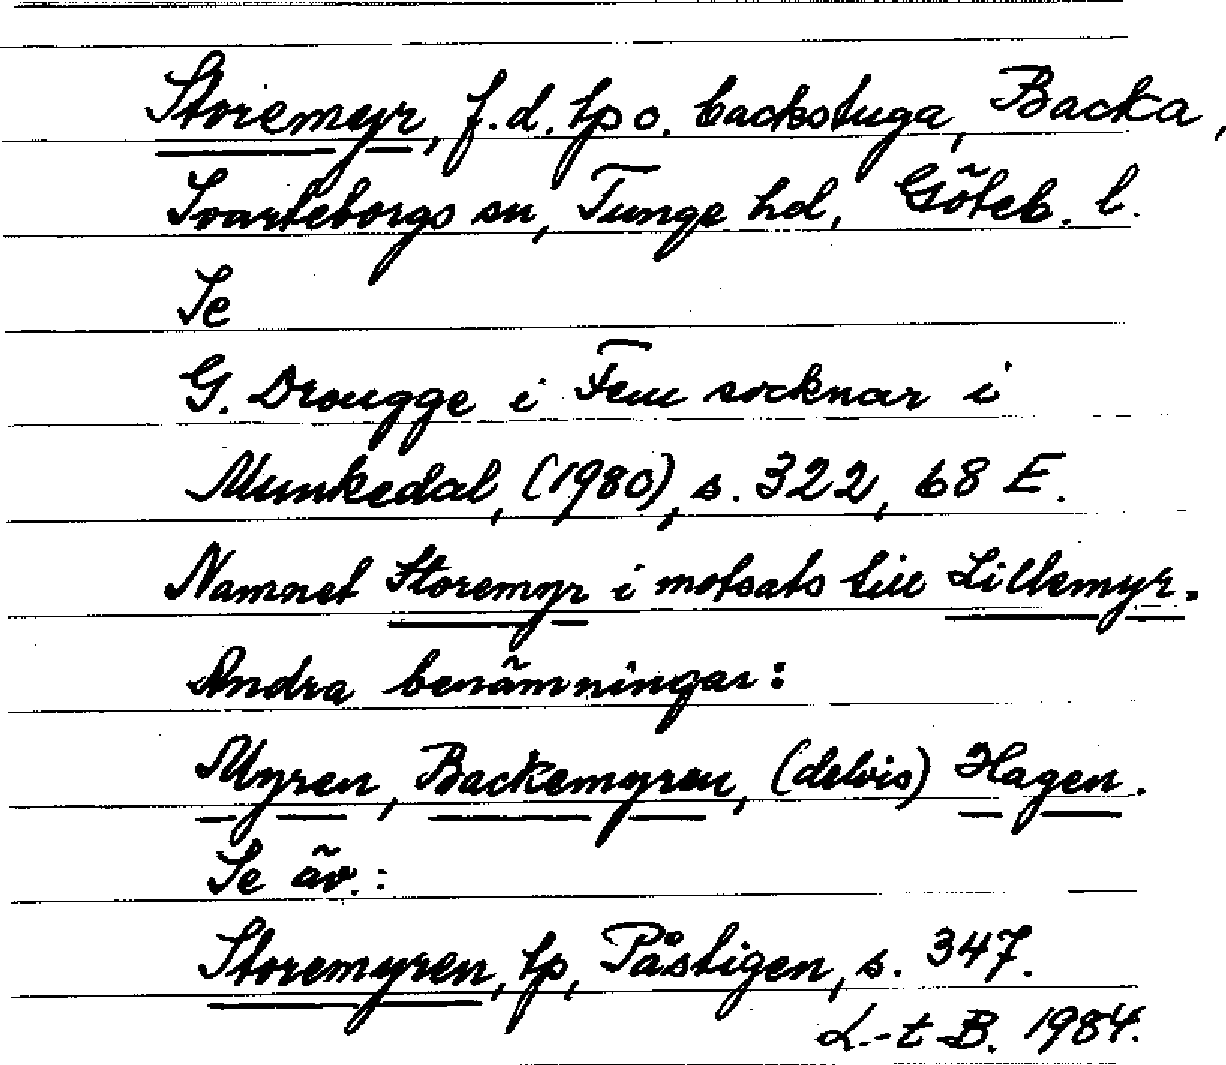 Storemyr, f.d. tp o. backstuga, Backa,
Svarteborgs sn, Tunge hd, Göteb. l.
Se
G. Drougge i Fem socknar i
Munkedal, (1980), s. 322, 68 E.
Namnet Storemyr i motsats till Lillemyr.
Andra benämningar:
Myren, Backemyren, (delvis) Hagen.
Se äv.:
Storemyren, tp, Påstigen, s. 347.
L-t B. 1984.